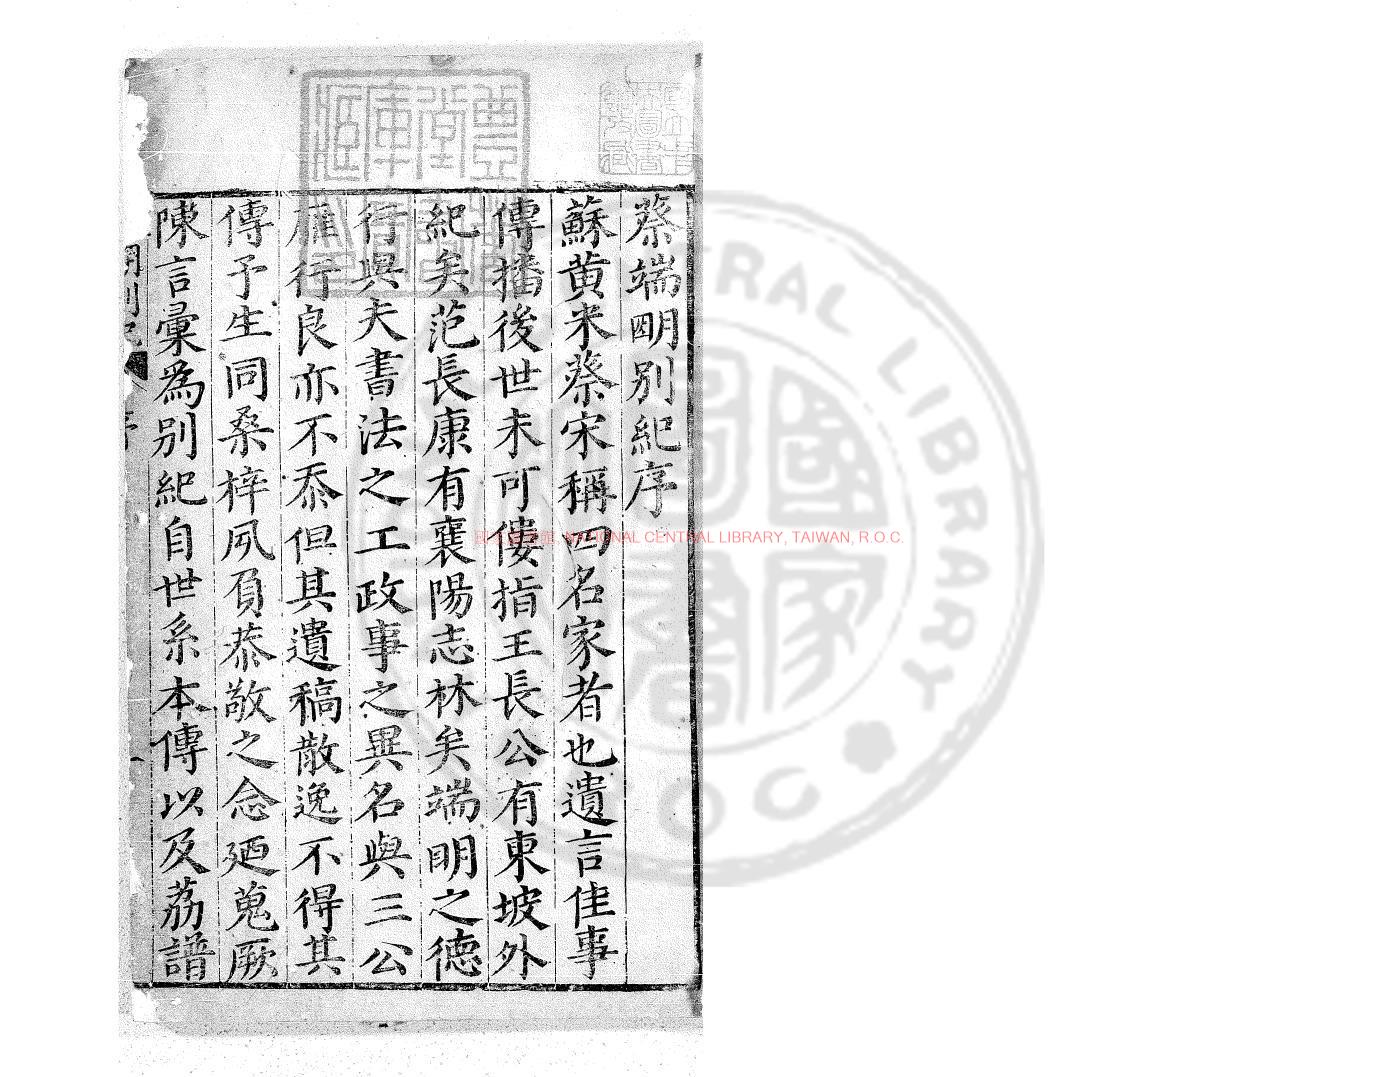 蔡端明別紀序
蘇黃米蔡宋稱四名家者也遺言佳事
傳播後世未可僂指王長公有東坡外
紀矣范長康有襄陽志林矣端明之德
行與夫書法之工政事之異名與三公
雁行良亦不忝但其遺稿散逸不得其
傳予生同桑梓夙負恭敬之念廼蒐厥
陳言彙為別紀自世系本傳以及荔譜
序
國家圖書館, NATIONAL CENTRAL LIBRARY, TAIWAN, R.O.C.
CENTRAL LIBRARY
R.O.C